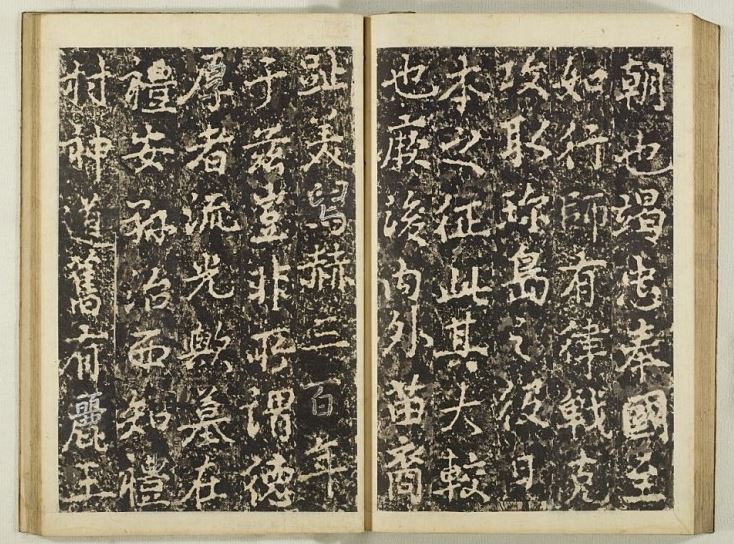 朝也竭忠奉國至
如行師有律戰克
攻取珍島之役日
本之征此其大較
也厥後內外苗裔
趾美舄赫三百年
于茲豈非所謂德
厚者流光歟墓在
禮安縣治西知禮
村神道舊有麗王